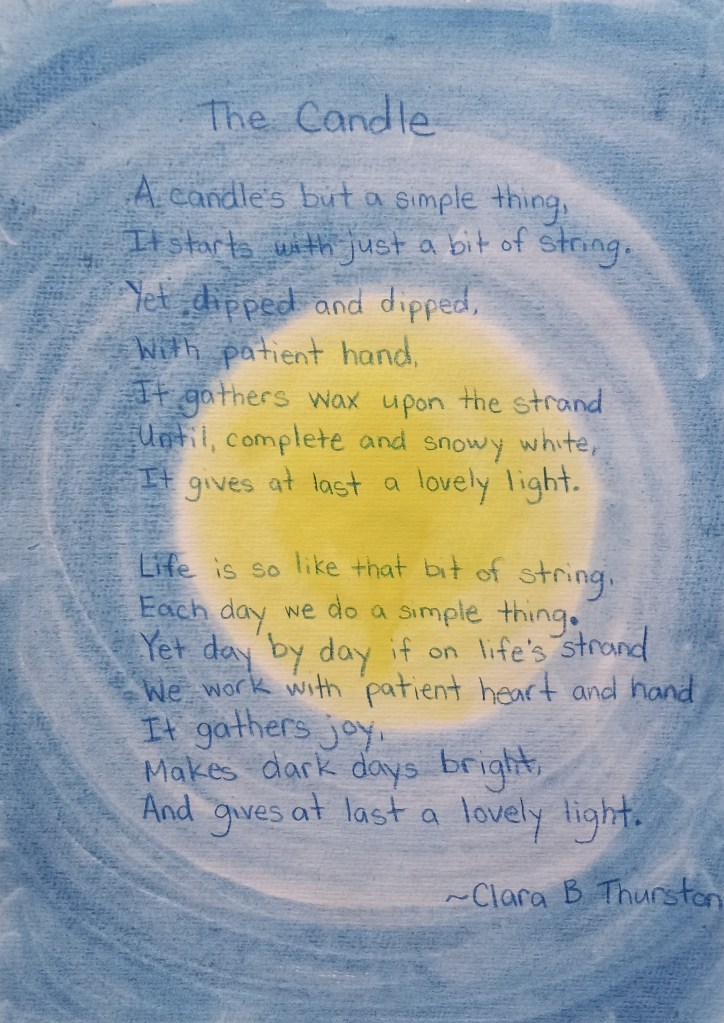 The Candle
A candle's but a simple thing,
It starts with just a bit of string.
Yet dipped and dipped,
With patient hand,
It gathers wax upon the strand
Until, complete and snowy white,
It gives at last a lovely light.
Life is so like that bit of string,
Each day we do a simple thing.
Yet day by day if on life's strand
We work with patient heart and hand
It gathers joy,
Makes dark days bright,
And gives at last a lovely light.
~Clara B Thurston